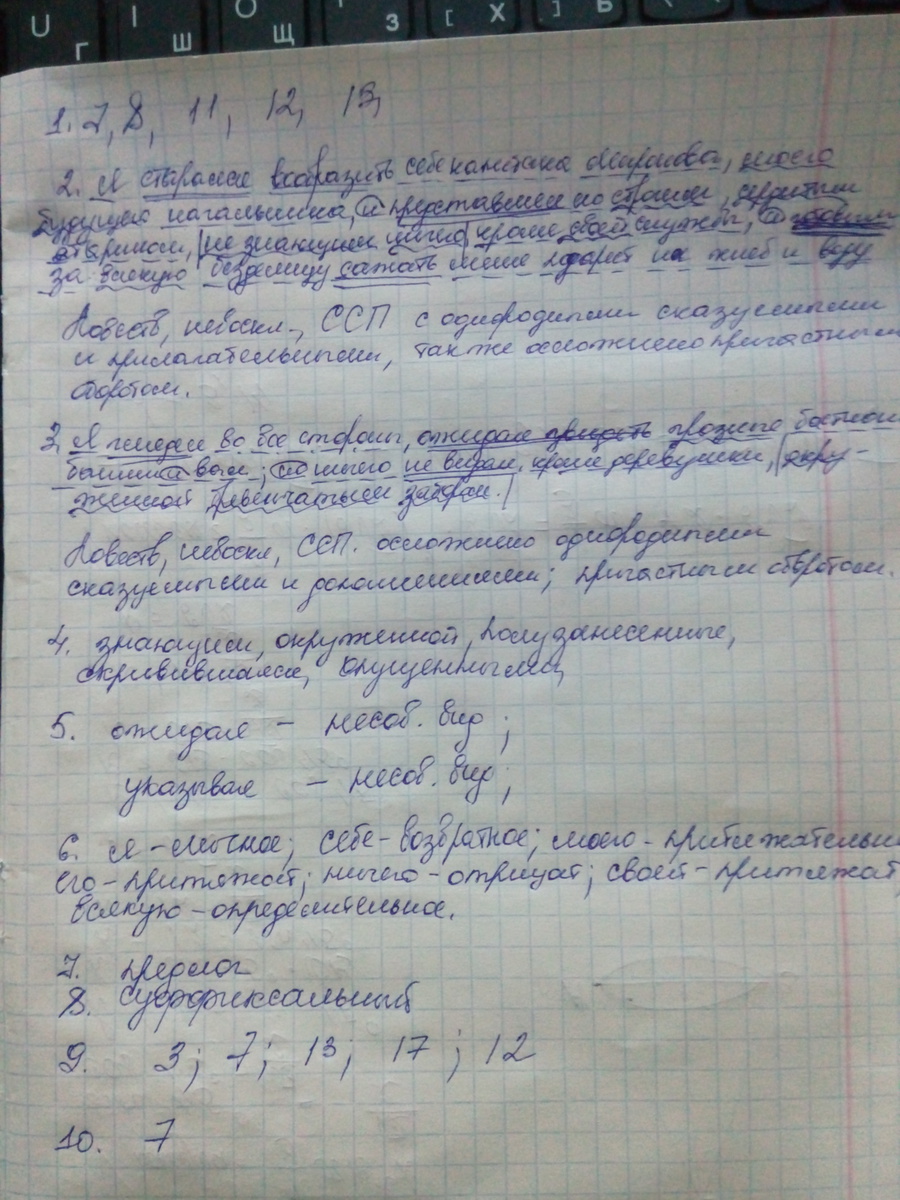 U I O [ ]
Г Ш Щ З Х Ъ
1. 7, 8, 11, 12, 13,
2. Я старался вообразить себе капитана Миронова, моего
будущего начальника, и представлял его строгим, сердитым
стариком, не знающим ничего кроме своей службы, и
за всякую безделицу сажать меня под арест на хлеб и воду
Повеств, невоскл., ССП с однородными сказуемыми
и прилагательными, также осложнено причастным
оборотом.
3. Я глядел во все стороны, ожидая грозные бастион
башни и вал; но ничего не видал, кроме деревушки, окру-
женной бревенчатым забором.
Повеств, невоскл, ССП. осложнено однородными
сказуемыми и дополнениями; причастным оборотом.
4. знающим, окруженной, полузанесенные,
скривившаяся, опущенными,
5. ожидая – несов. вид;
указывая – несов. вид;
6. я – личное; себе – возвратное; моего – притяжательн
его – притяжат; ничего – отрицат; своей – притяжат,
всякую – определительное.
7. предлог
8. суффиксальный
9. 3; 7; 13; 17; 12
10. 7